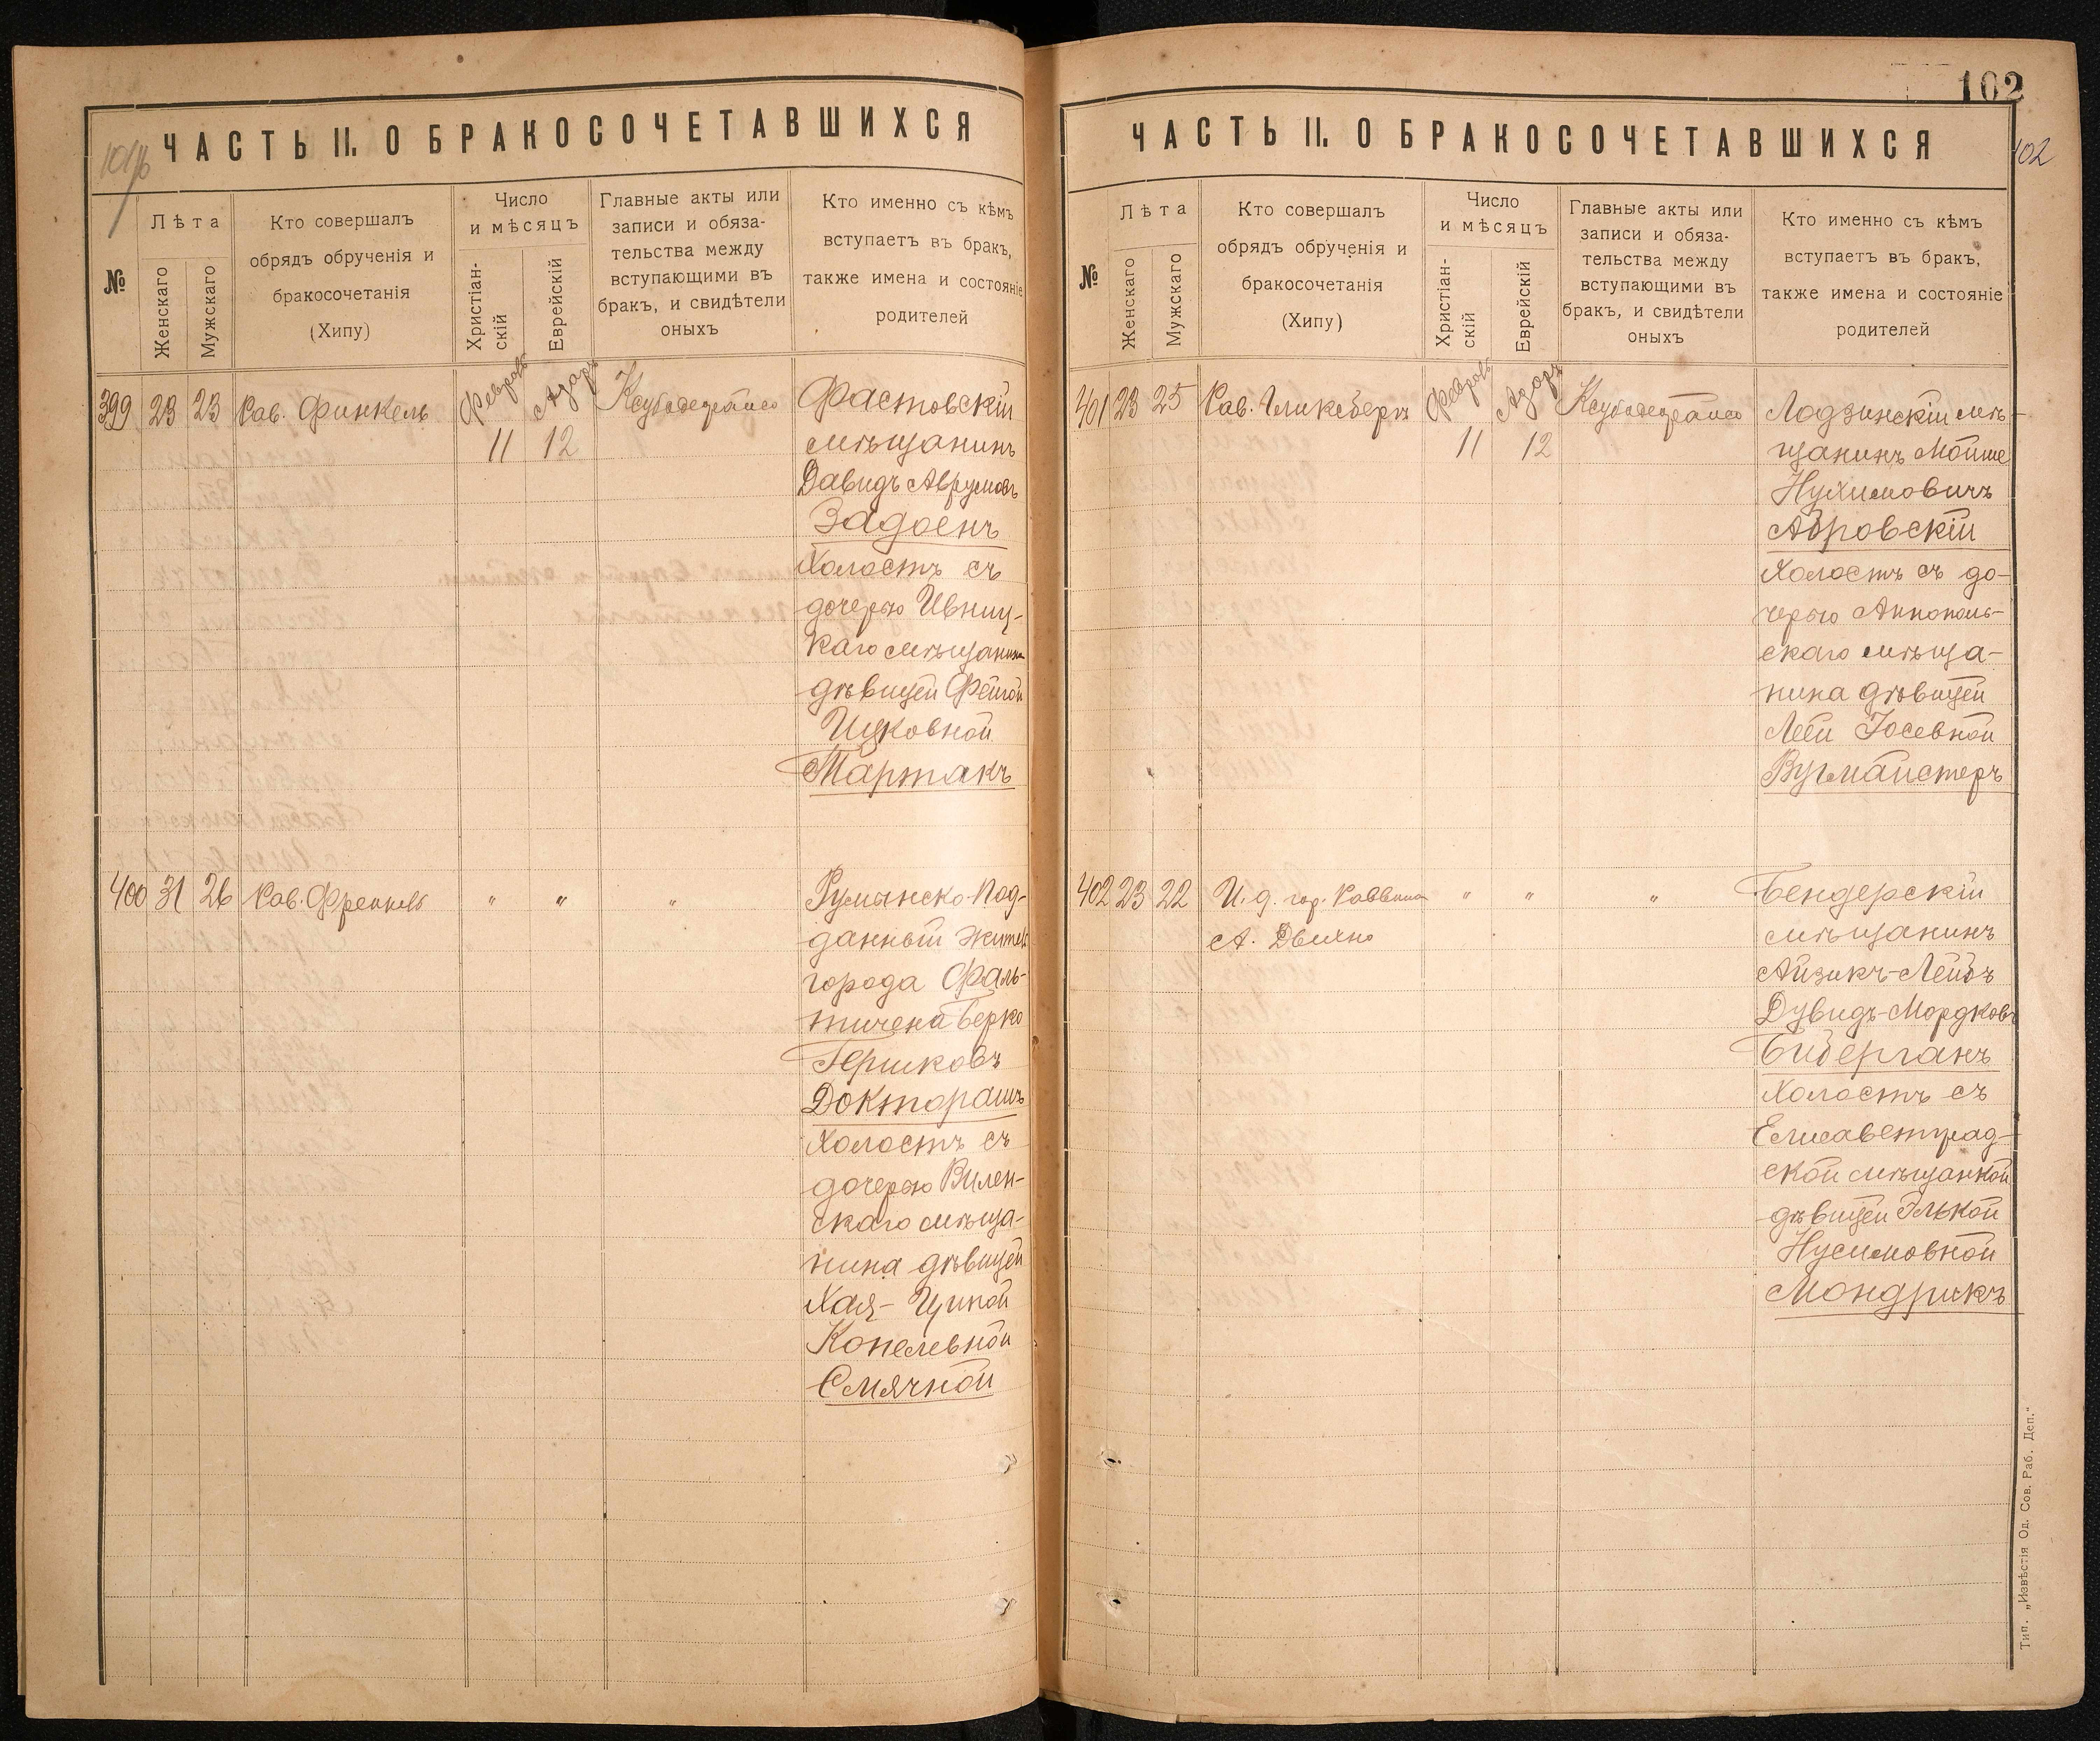 101/б
ЧАСТЬ II. О БРАКОСОЧЕТАВШИХСЯ
№
Лѣта
Женскаго
Мужскаго
Кто совершалъ
обрядъ обрученія и
бракосочетанія
(Хипу)
Число
и мѣсяцъ
Христіан-
скій
Еврейскій
Главные акты или
записи и обяза-
тельства между
вступающими въ
бракъ, и свидѣтели
оныхъ
Кто именно съ кѣмъ
вступаетъ въ бракъ,
также имена и состояніе
родителей
399 23 23 Рав. Финкель
Февраль 11
Адаръ 12
Фастовскій
мѣщанинъ
Давидъ Аврумовъ
Задоенъ
Холостъ съ
дочерью Ивниц-
каго мѣщанина
дѣвицей Фейгой
Ицковной
Мартакъ
400 31 26 Рав. Френкель " " "
Румынско-Под-
данный житель
города Фаль-
тичена Берко
Гершковъ
Доктораш
Холостъ съ
дочерью Вилен-
скаго мѣща-
нина дѣвицей
Хая-Ципой
Копелевной
Смячной
102
ЧАСТЬ II. О БРАКОСОЧЕТАВШИХСЯ
102
№
Лѣта
Женскаго
Мужскаго
Кто совершалъ
обрядъ обрученія и
бракосочетанія
(Хипу)
Число
и мѣсяцъ
Христіан-
скій
Еврейскій
Главные акты или
записи и обяза-
тельства между
вступающими въ
бракъ, и свидѣтели
оныхъ
Кто именно съ кѣмъ
вступаетъ въ бракъ,
также имена и состояніе
родителей
401 23 25 Рав. Гликсбергъ
Февраль 11
Адаръ 12
Лодзинскій мѣ-
щанинъ Мойше
Нухимовичъ
Абровскій
Холостъ съ до-
черью Аннополь-
скаго мѣща-
нина дѣвицей
Леей Іосевной
Вугмайстеръ
402 23 22 И. д. гор. Раввина " " "
А. Двихно
Бендерскій
мѣщанинъ
Айзикъ-Лейбъ
Дувидъ-Мордковъ
Бидерганъ
Холостъ съ
Елисаветград-
ской мѣщанкой
дѣвицей Элькой
Нусимовной
Мондрикъ
Тип. „Извѣстія Од. Сов. Раб. Деп."